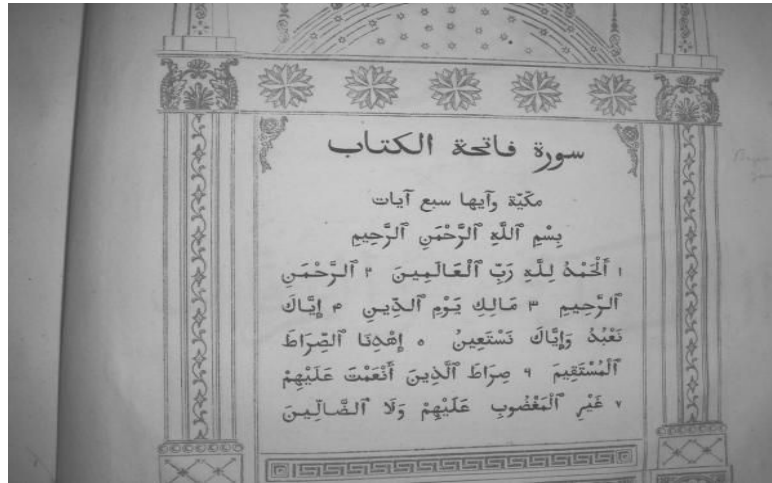 سورة فاتحة الكتاب
مكّيّة وآيها سبع آيات
بِسْمِ ٱللَّهِ ٱلرَّحْمَنِ ٱلرَّحِيمِ
١ أَلْحَمْدُ لِلَّهِ رَبِّ ٱلْعَالَمِينَ ٢ ٱلرَّحْمَنِ
ٱلرَّحِيمِ ٣ مَالِكِ يَوْمِ ٱلدِّينِ ۴ إِيَّاكَ
نَعْبُدُ وَإِيَّاكَ نَسْتَعِينُ ٥ إِهْدِنَا ٱلصِّرَاطَ
ٱلْمُسْتَقِيمَ ٦ صِرَاطَ ٱلَّذِينَ أَنْعَمْتَ عَلَيْهِمْ
٧ غَيْرِ ٱلْمَغْضُوبِ عَلَيْهِمْ وَلَا ٱلضَّالِّينَ